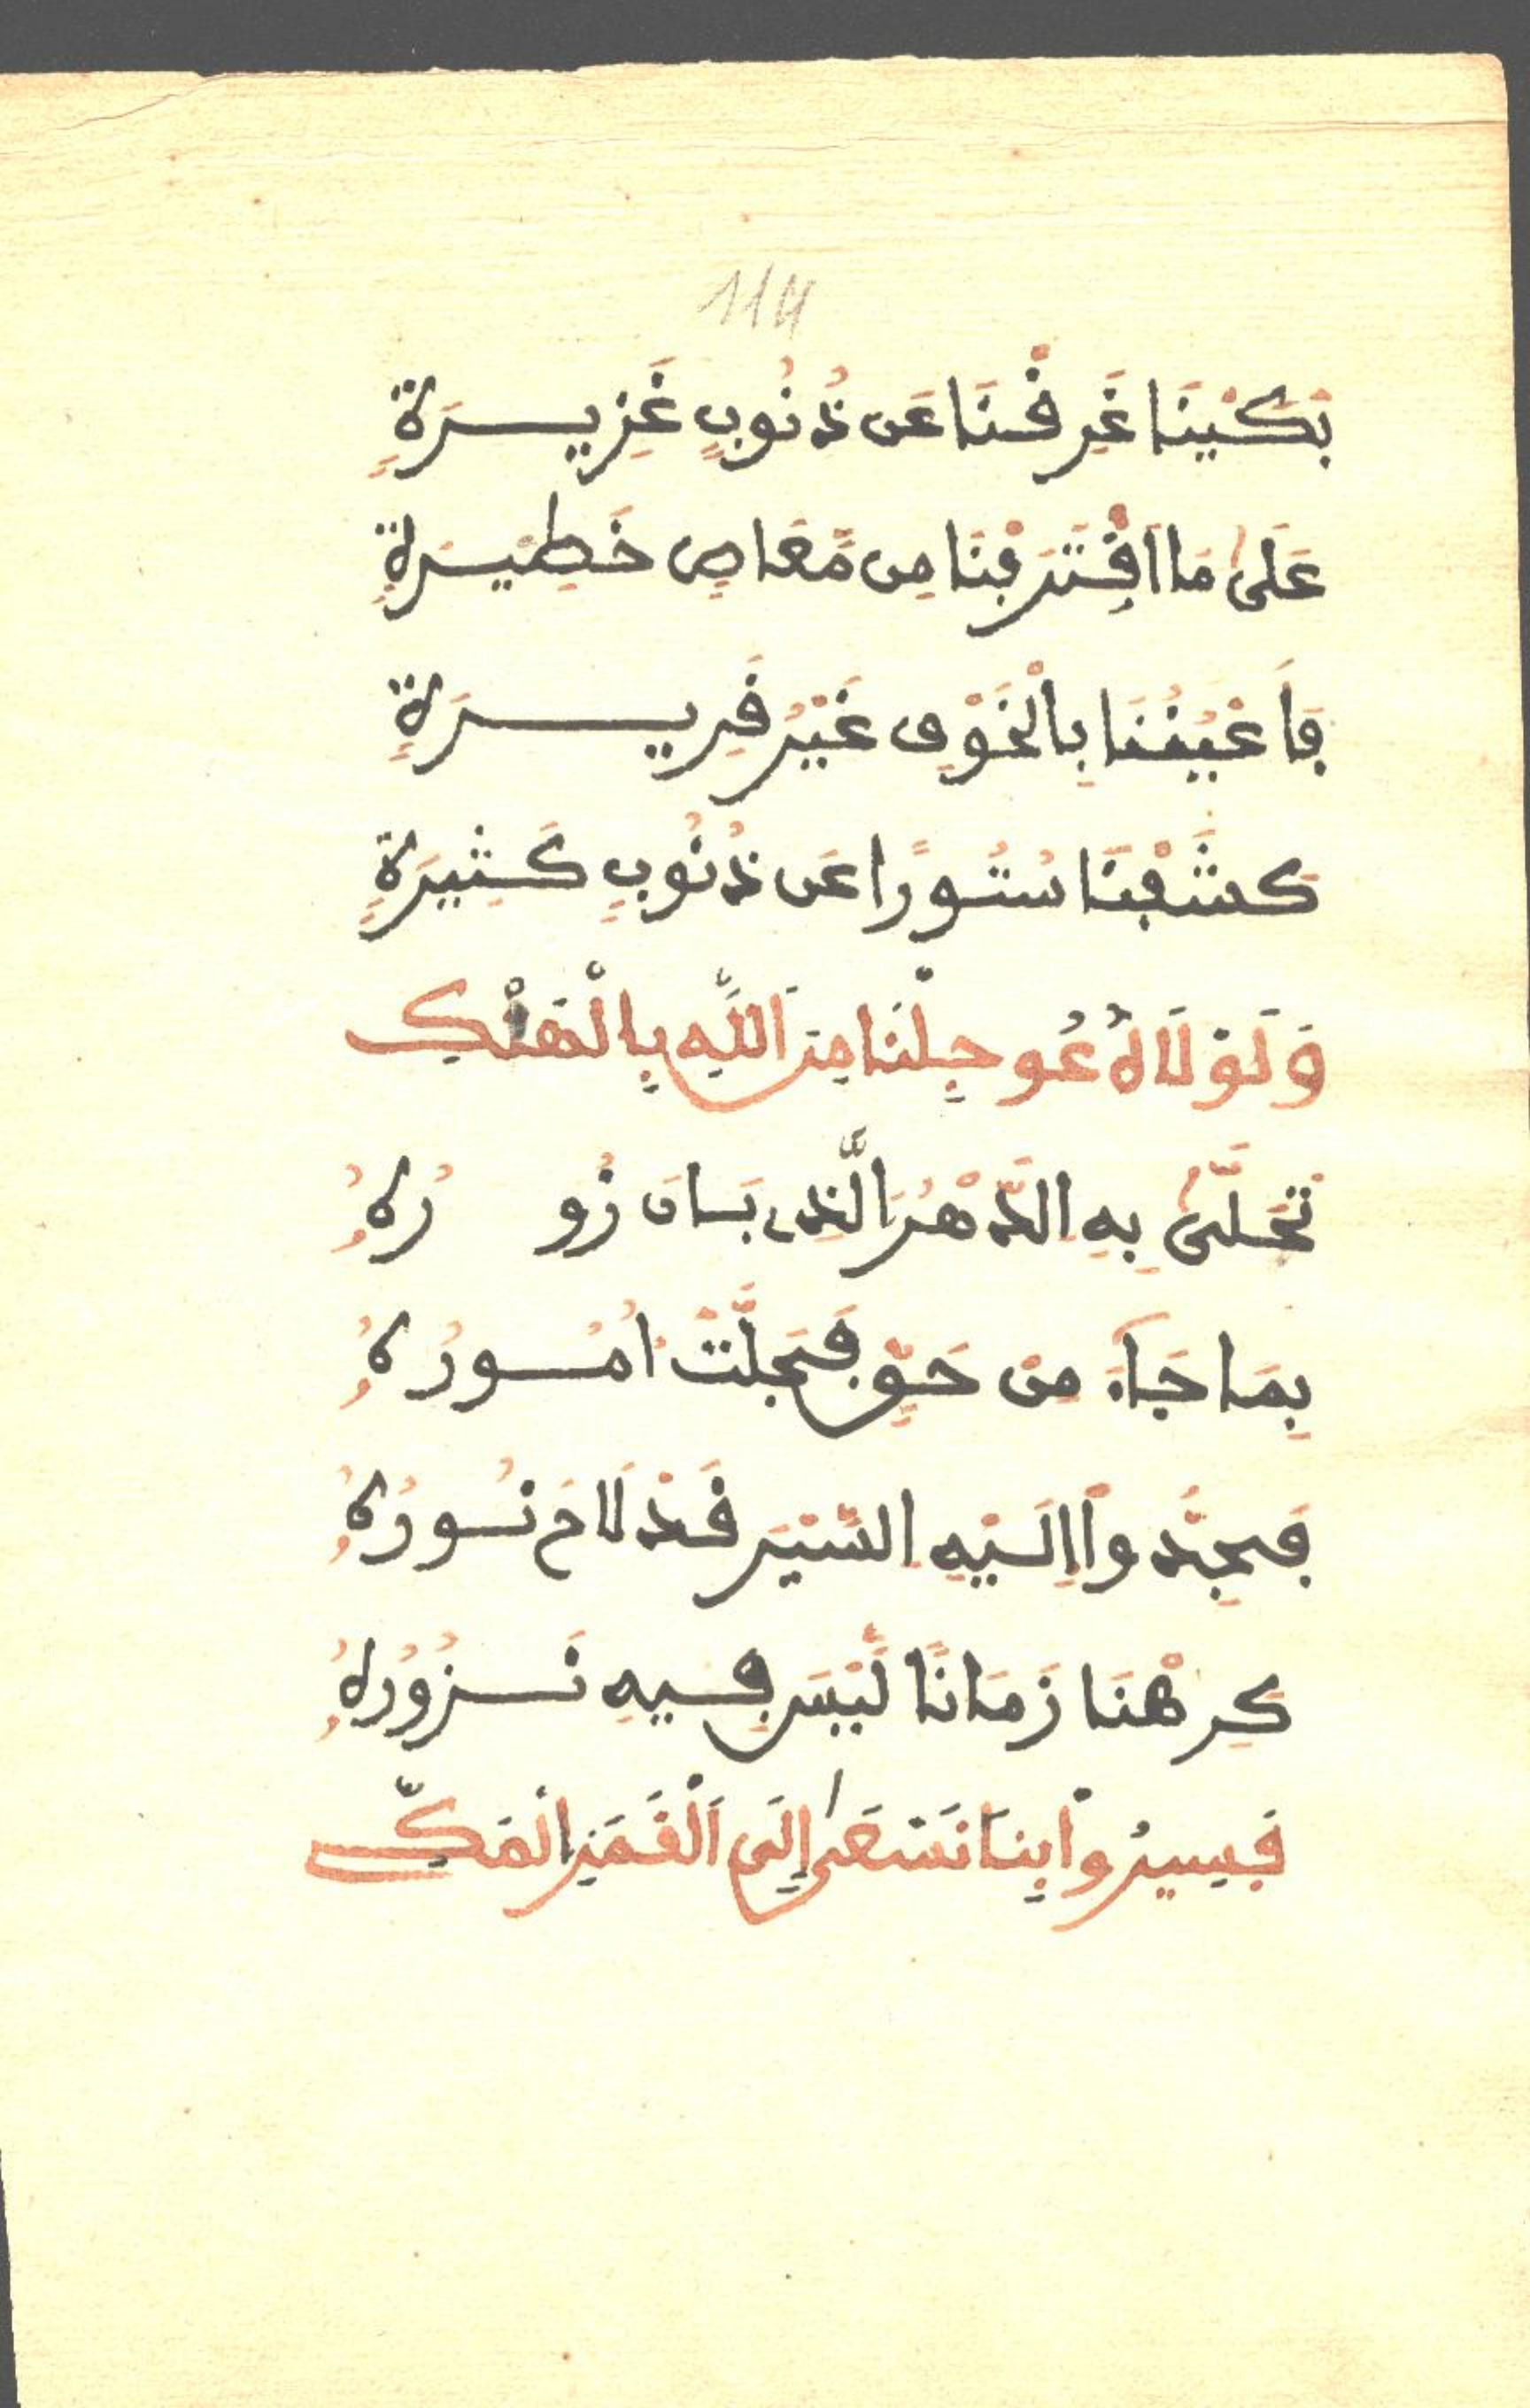 114
بَكَيْنَا غَرِقْنَا عَن ذُنُوبٍ غَزِيرَةٍ
عَلَىٰ مَا اَقْتَرَفْنَا مِن مَّعَاصٍ خَطِيرَةٍ
فَأَعْيُنُنَا بِالْخَوْفِ غَيْرُ قَرِيرَةٍ
كَشَفْنَا سُتُورًا عَن ذُنُوبٍ كَثِيرَةٍ
وَلَوْلَاهُ عُوجِلْنَا مِنَ اَللَّهِ بِالْهَتْكِ
تَحَلَّىٰ بِهِ الدَّهْرُ الَّذِي بَانَ زُورُهُ
بِمَا جَآءَ مِنْ حَقٍّ فَجَلَّتْ اُمُورُهُ
فَجِدُّواْ إِلَيْهِ السَّيْرَ قَدْ لَاحَ نُورُهُ
كَرِهْنَا زَمَانًا لَّيْسَ فِيهِ نَزُورُهُ
فَسِيرُواْ بِنَا نَسْعَىٰ إِلَى اَلْقَمَرِ الْمَكِّ